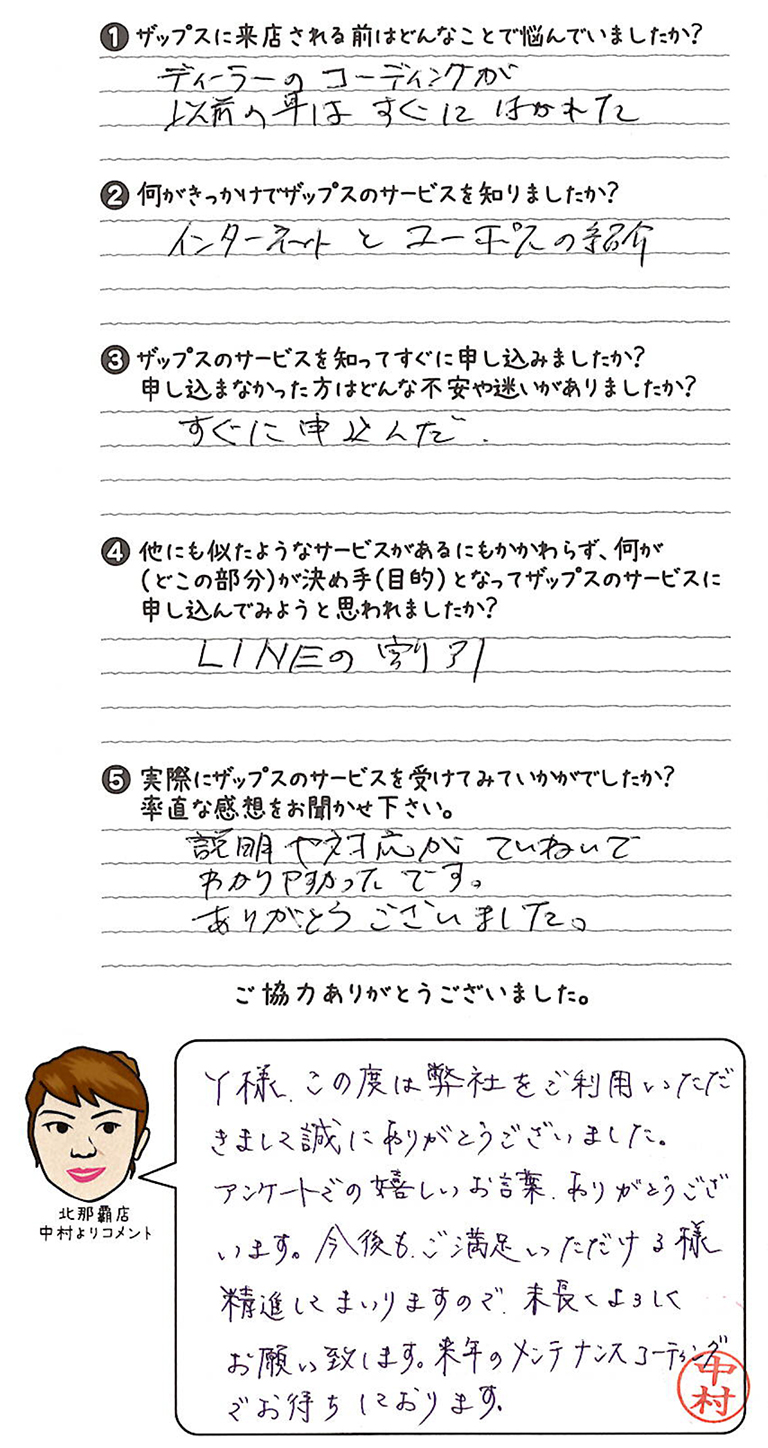 ① ザップスに来店される前はどんなことで悩んでいましたか?
ディーラーのコーディングが
以前の車は すぐに はがれた
② 何がきっかけでザップスのサービスを知りましたか?
インターネットと ユーポスの紹介
③ ザップスのサービスを知ってすぐに申し込みましたか?
申し込まなかった方はどんな不安や迷いがありましたか?
すぐに申込んだ.
④ 他にも似たようなサービスがあるにもかかわらず、何が
(どこの部分)が決め手(目的)となってザップスのサービスに
申し込んでみようと思われましたか?
LINEの割引
⑤ 実際にザップスのサービスを受けてみていかがでしたか?
率直な感想をお聞かせ下さい。
説明や対応が ていねいで
わかりやすかったです。
ありがとうございました。
ご協力ありがとうございました。
Y様、この度は弊社をご利用いただ
きまして誠にありがとうございました。
アンケートでの嬉しいお言葉、ありがとうござ
います。今後も、ご満足いただける様
精進してまいりますので、末長くよろしく
お願い致します。来年のメンテナンスコーティング
でお待ちしております。
中村
北那覇店
中村よりコメント